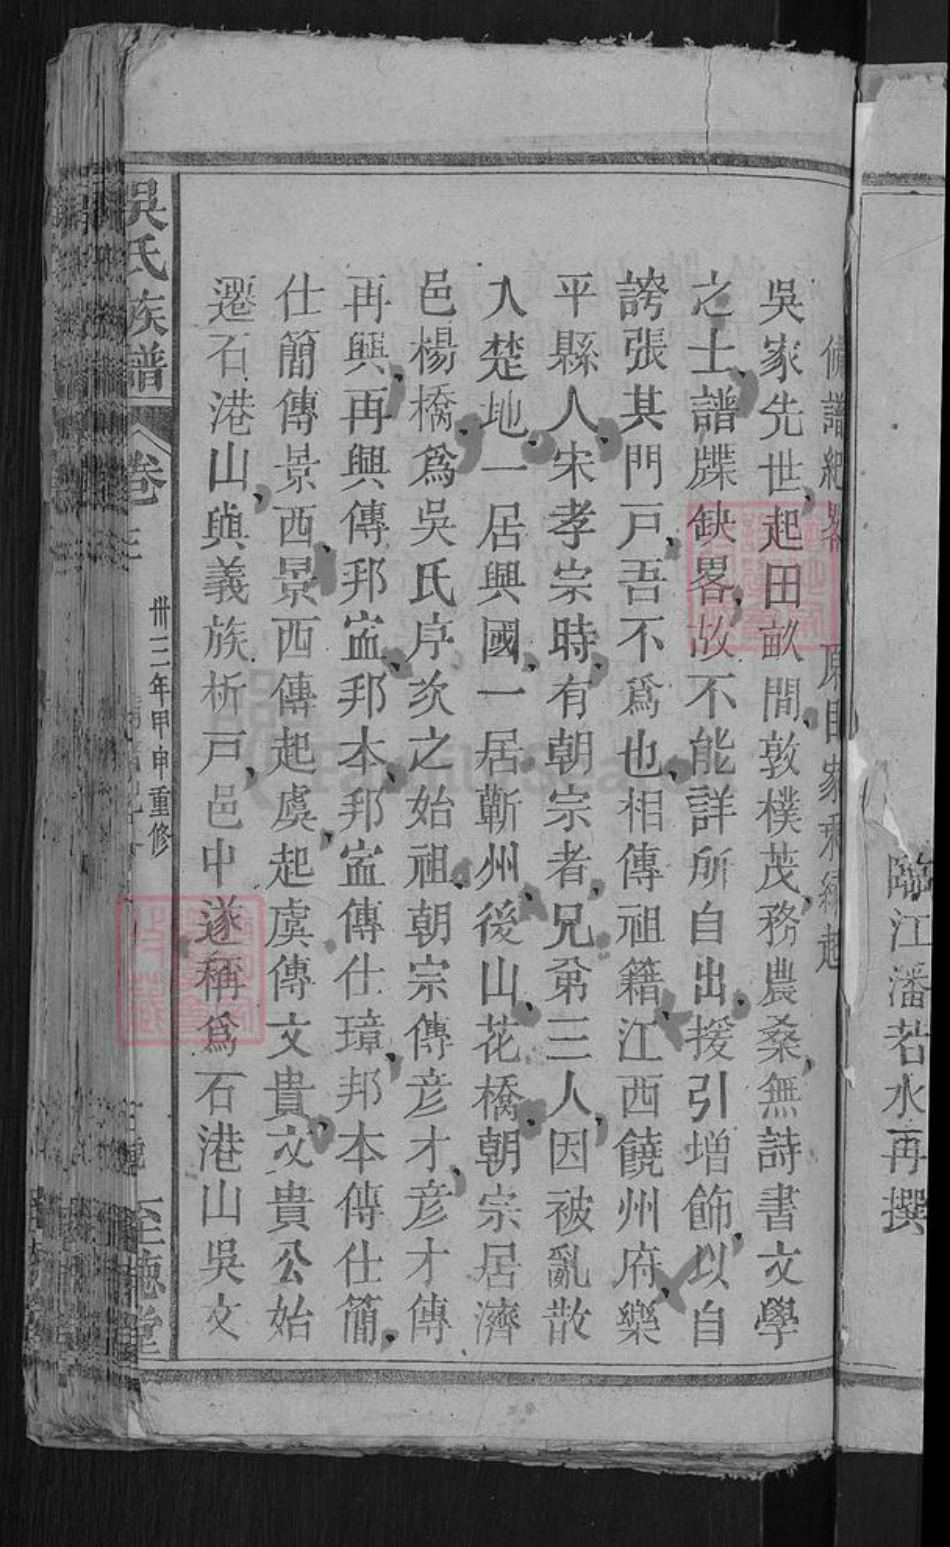 臨江潘若水再撰
吳家先世起田畝間敦樸茂務農桑無詩書文學
之士譜牒缺畧故不能詳所自出援引增飾以自
誇張其門戸吾不爲也相傳祖籍江西饒州府樂
平縣人宋孝宗時有朝宗者兄弟三人因被亂散
入楚地一居興國一居蘄州後山花橋朝宗居濟
邑楊橋爲吳氏序次之始祖朝宗傳彦才彦才傳
再興再興傳邦寍邦本邦寍傳仕璋邦本傳仕簡
仕簡傳景西景西傳起虞起虞傳文貴文貴公始
遷石港山與義族析戸邑中遂稱爲石港山吳文
吳氏族譜
卷
卅三年甲申重修
至德堂